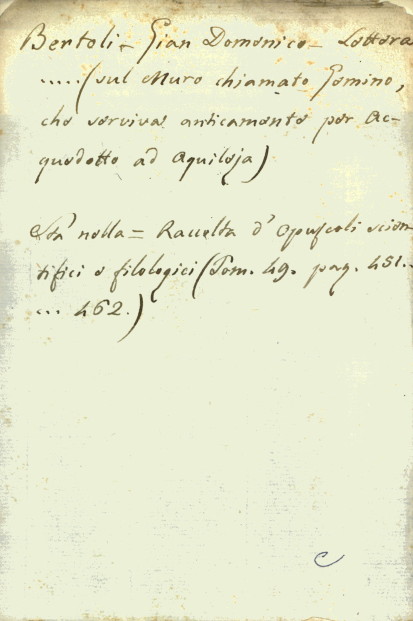 Bertoli - Gian Domenico - Lettera
.....(sul Muro chiamato Gemino,
che serviva anticamente per Ac-
quedotto ad Aquileja)
Sta' nella = Raccolta d' Opuscoli scien-
tifici e filologici (Tom. 49. pag. 451..
... 462.)
C